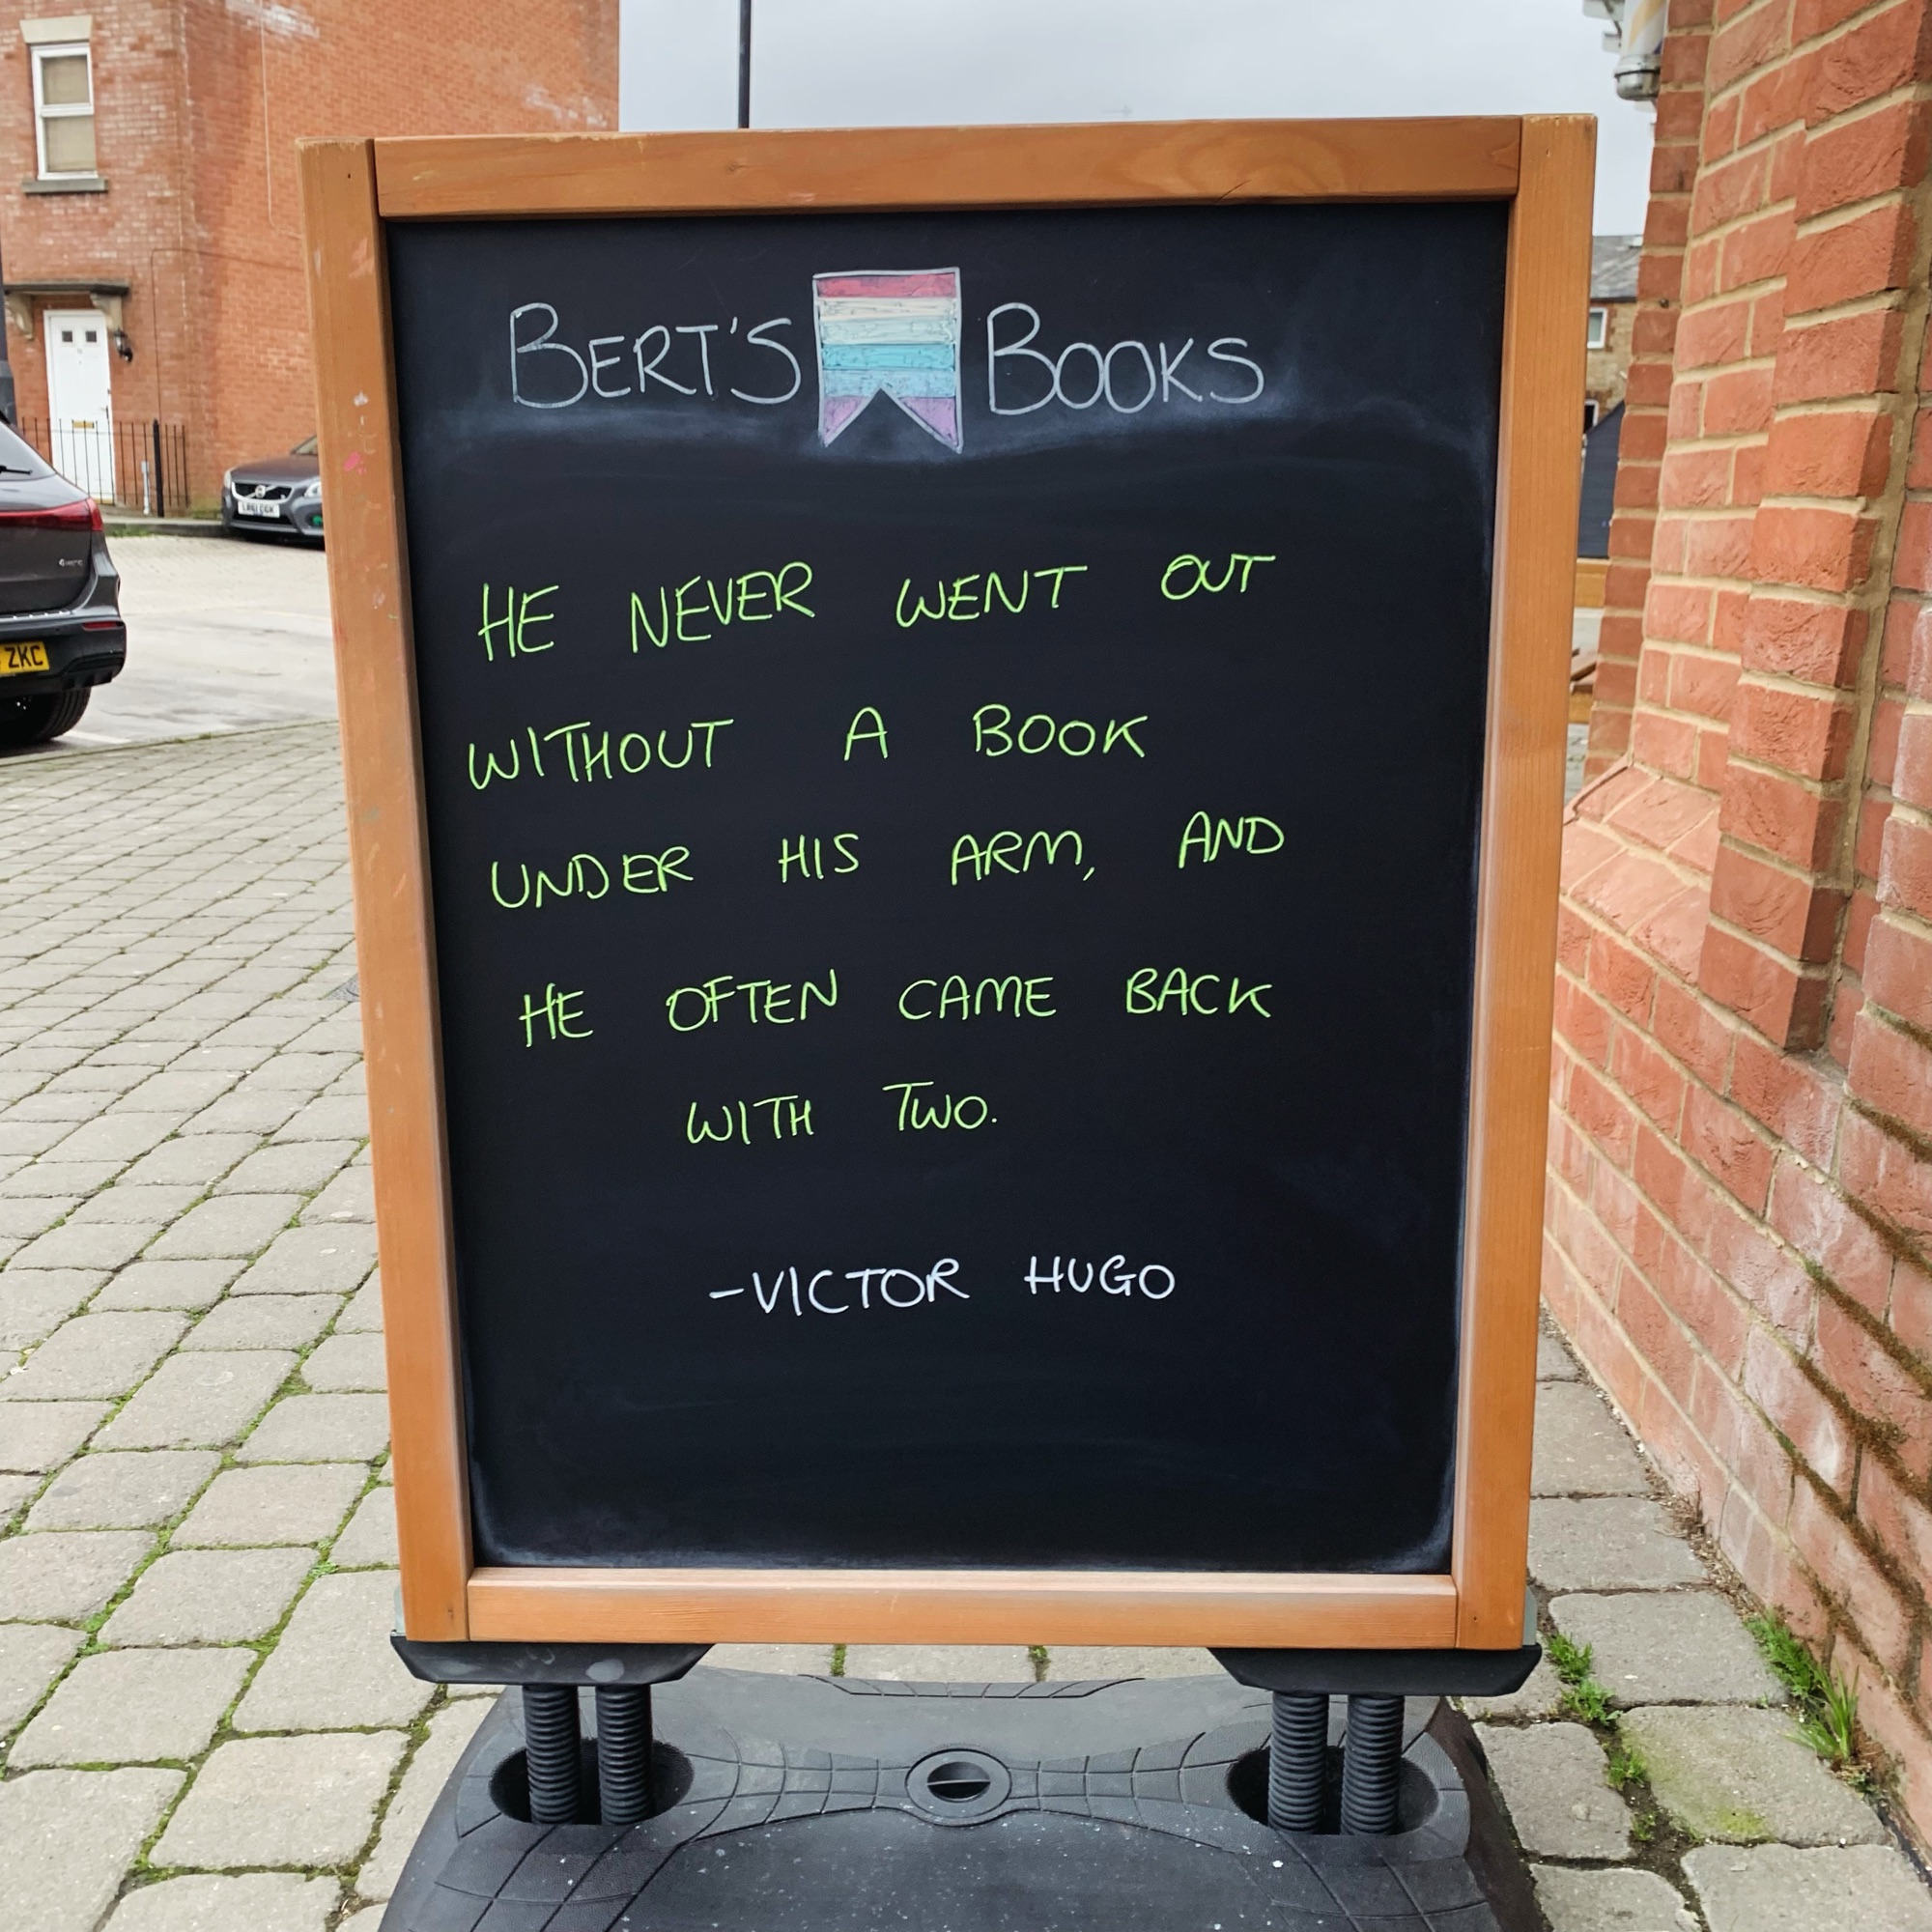 BERT'S BOOKS
HE NEVER WENT OUT
WITHOUT A BOOK
UNDER HIS ARM, AND
HE OFTEN CAME BACK
WITH TWO.
-VICTOR HUGO
ZKC